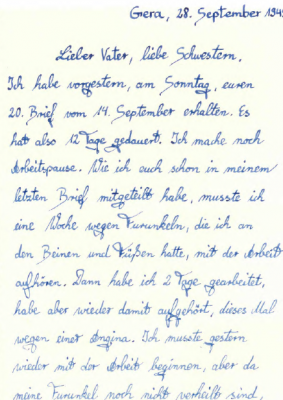 Gera, 28. September 194
Lieber Vater, liebe Schwestern,
Ich habe vorgestern, am Sonntag, euren
20. Brief vom 14. September erhalten. Es
hat also 12 Tage gedauert. Ich mache noch
Arbeitspause. Wie ich euch schon in meinem
letzten Brief mitgeteilt habe, musste ich
eine Woche wegen Furunkeln, die ich an
den Beinen und Füßen hatte, mit der Arbeit
aufhören. Dann habe ich 2 Tage gearbeitet,
habe aber wieder damit aufgehört, dieses Mal
wegen einer Angina. Ich musste gestern
wieder mit der Arbeit beginnen, aber da
meine Furunkel noch nicht verheilt sind,